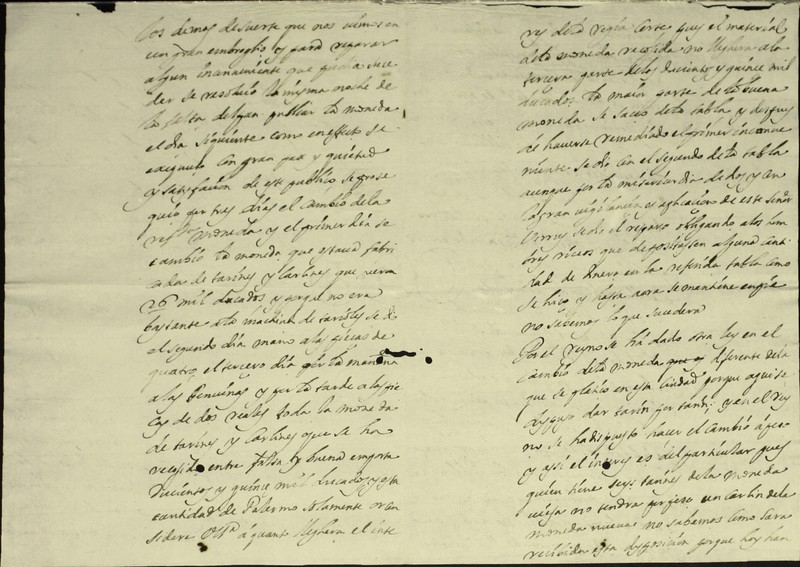 los demas de suerte que nos vimos en
un gran embroglio y para reparar
algun incanuiniente que podia suce
der se resolvió la misma noche de
la fiesta de Juan publicar la moneda
el dia siguiente como en effecto se
con gran paz y quietud
y satisfacion de este publico se prose
guio por tres dias el cambio de la
moneda y el primer dia se
cambió la moneda que estaua fabri
cada de tarines y Carlines que
26 mil ducados y porque no era
bastante a la machina de se
el segundo dia mano a las piecas de
quatro, el tercero dia por la mañana
a las Genuinas y por la tarde a las pie
cas de dos reales toda la moneda
de tarines y Carlines que se ha
recojido entre falsa y buena importa
ducientos y quince mil ducados y esta
cantidad de Palermo solamente con
sidere á quanto llegara el inte
res de la regia Corte pues el material
de la moneda recojida no lleghera a la
tercera parte de los ducientos y quince mil
ducados la maior parte de la buena
moneda se saco de la tabla y despues
de hauerse remediado el primer inconue
niente se dio con el segundo de la tabla
aunque por la misericordia de Dios y con
la gran vigilancia y aplicacion de este señor
Virrey se dio el reparo obligando a los hom
bres ricos que depositassen alguna canti
dad de dinero en la referida tabla como
se hiço y hasta aora se mantiene en pie
no sabemos lo que sucedera
Por el reyno se há dado otra ley en el
cambio de la moneda diferente de la
que se platico en esta ciudad porque aqui se
dispuso dar tarin por tarin; y en el rey
no se ha dispuesto hacer el cambio á peso
y assi el interes es del particular pues
quien tiene seys tarines de la moneda
vieja no tendra por peso un Carlin de la
moneda nueua no sabemos como sara
recibida esta disposicion porque hoy han